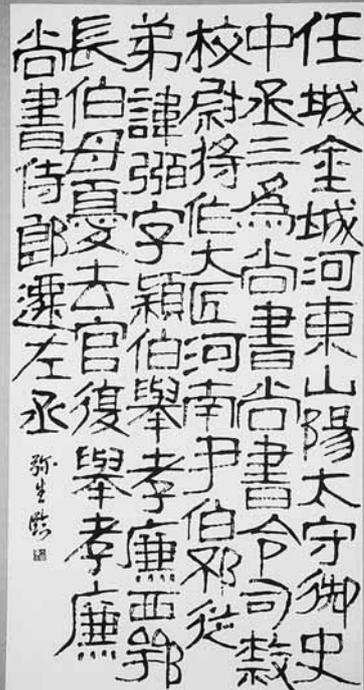 任城金城河東山陽太守御史
中丞三為尚書尚書令司隸
校尉將作大匠河南尹伯邳從
弟諱弼字穎伯舉孝廉西鄂
長伯母憂去官復舉孝廉
尚書侍郎遷左丞
弥生